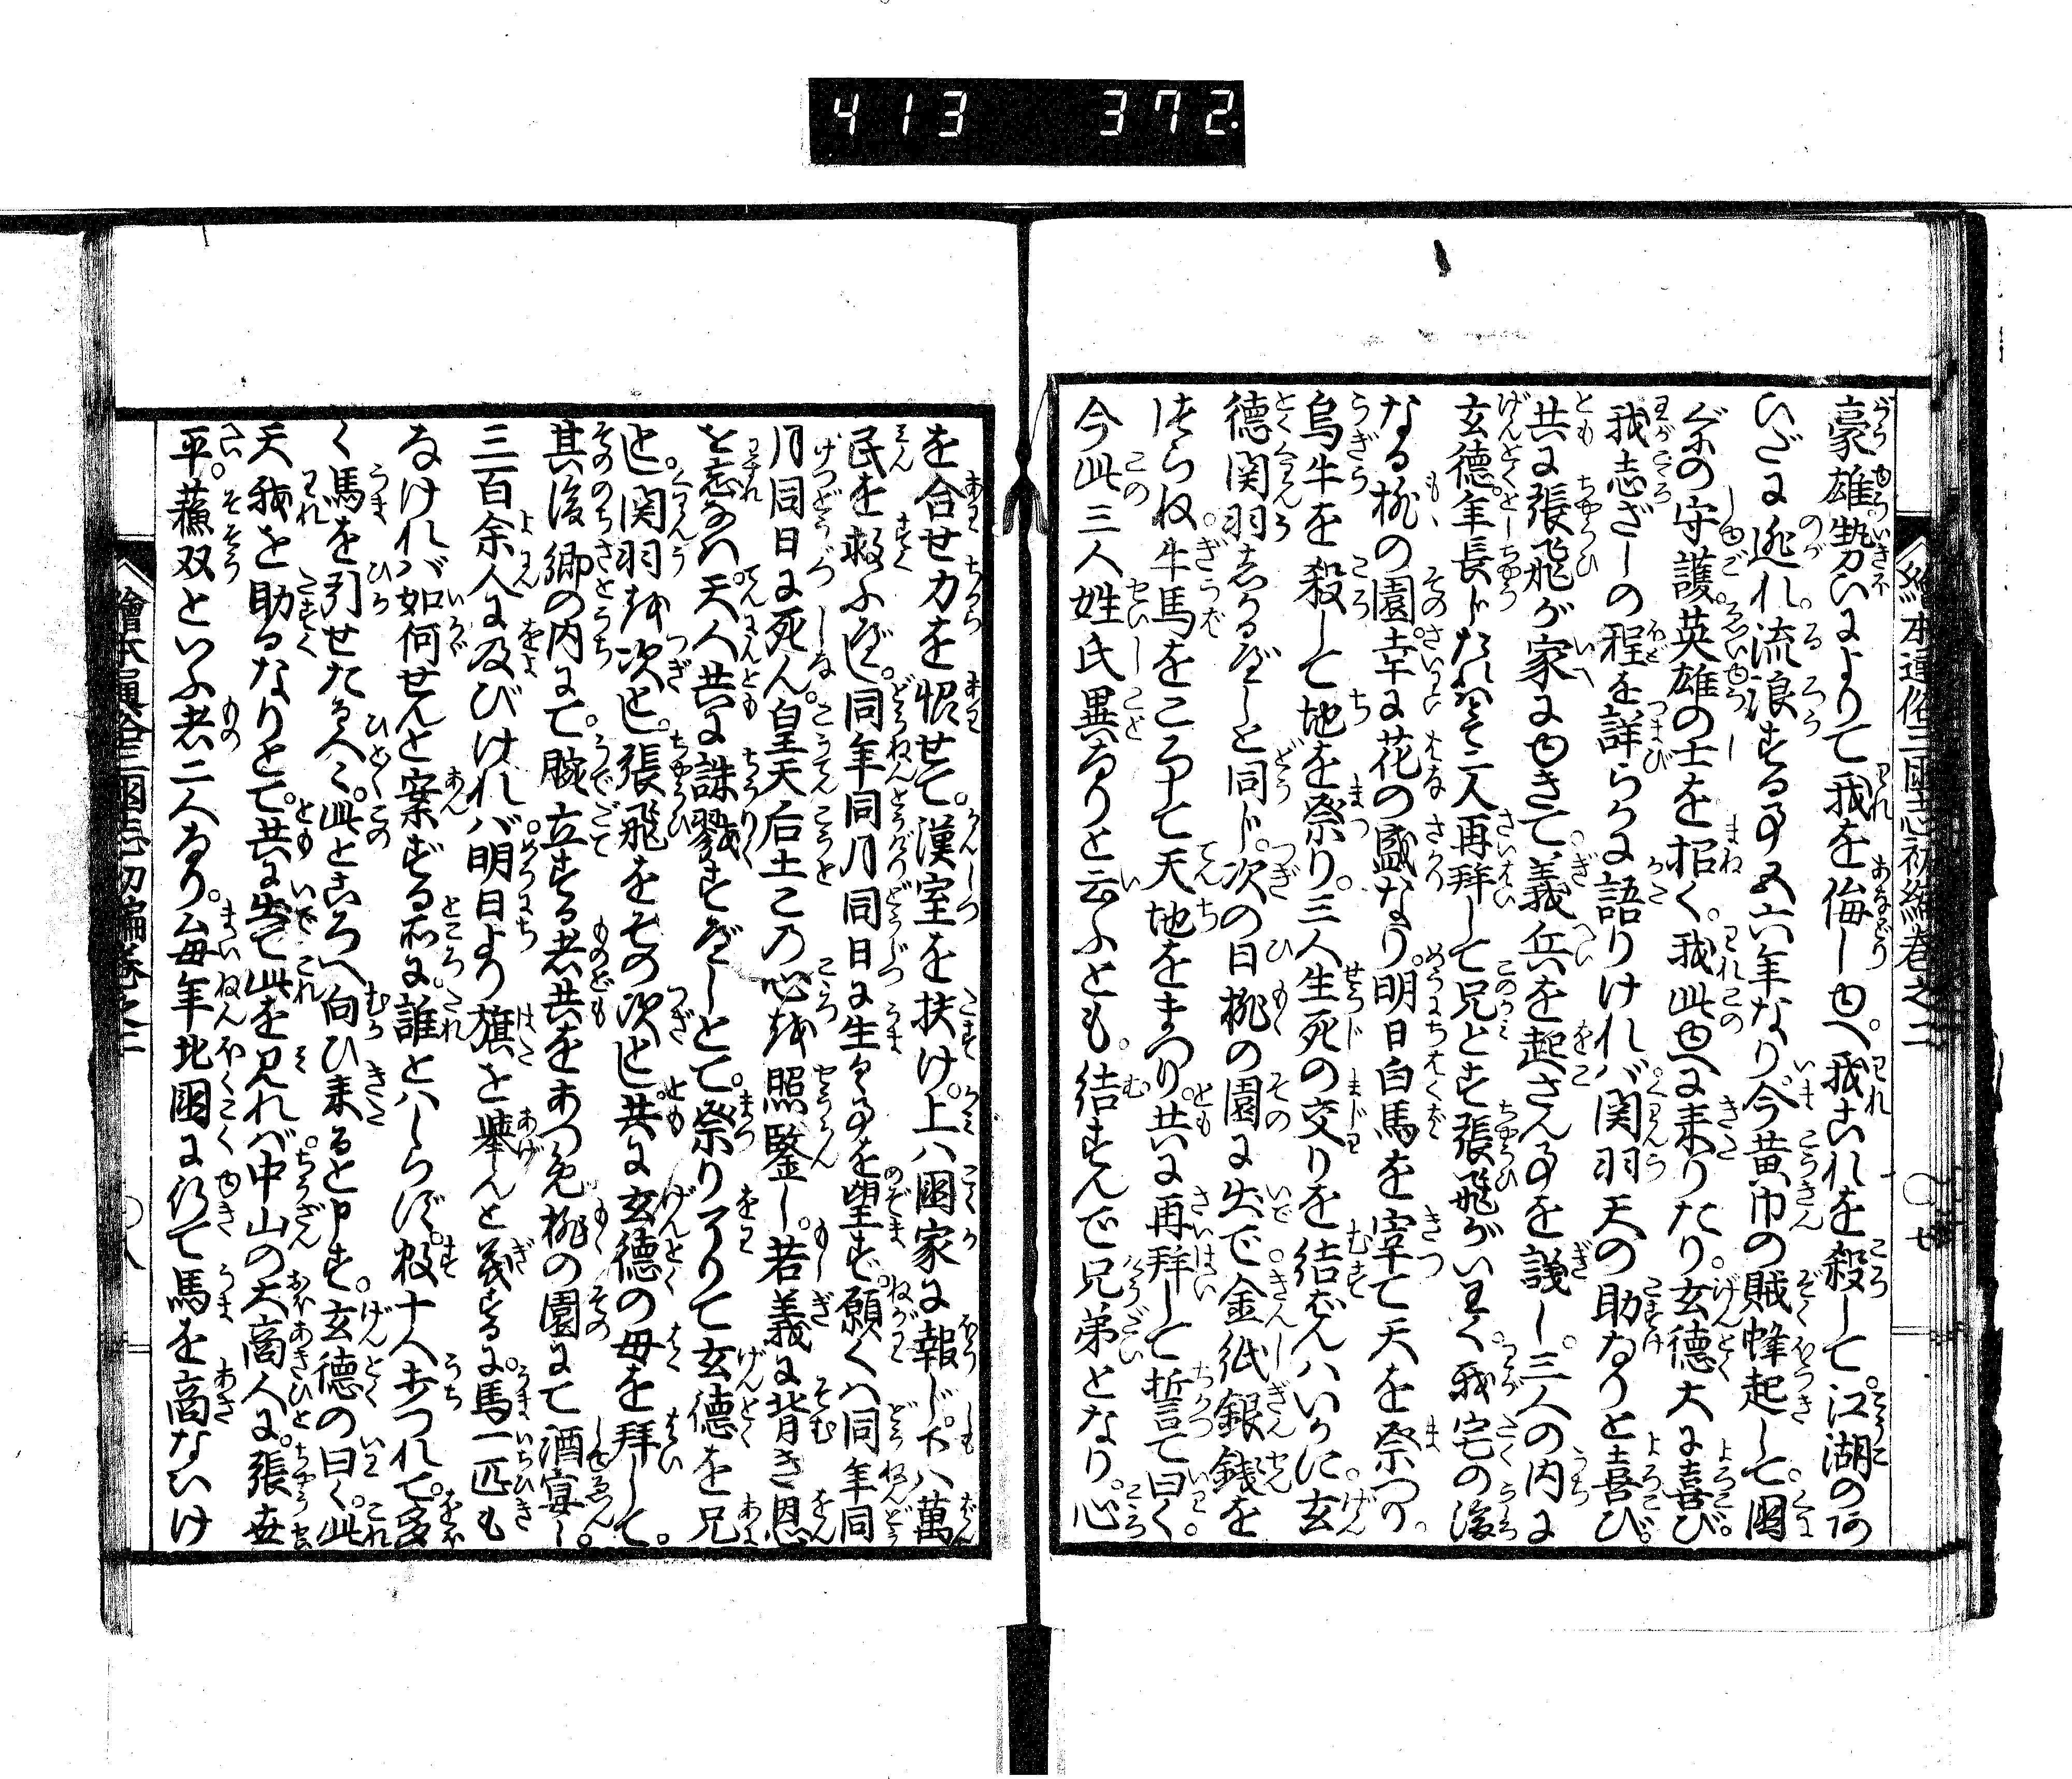 413 372
繪本通俗三國志初編巻之二 〇七
豪雄勢ひによりて我を侮しゆへ。我これを殺して。江湖のあ
ひだに逃れ。流浪する事五六年なり。今黄巾の賊蜂起して。國
〲の守護。英雄の士を招く。我此ゆへに来りたり。玄德大に喜び。
我志ざしの程を詳らかに語りければ。関羽天の助なりと喜び。
共に張飛が家にゆきて。義兵を起さん事を議し。三人の内に
玄德。年長じたればとて二人再拜して兄とす。張飛がいわく。我宅の後
なる桃の園。幸に花の盛なり。明日白馬を宰て天を祭り。
烏牛を殺して地を祭り。三人生死の交りを結ばんハいかに。玄
德関羽しかるべしと同じ。次の日桃の園に出で。金紙銀銭を
つらね。牛馬をころして天地をまつり。共に再拜して誓て曰く。
今此三人姓氏異なりと云ふとも。結すんで兄弟となり。心
を合せ力を恊せて。漢室を扶け。上ハ國家に報じ。下ハ萬
民を救ふべし。同年同月同日に生るゝ事を望ず。願くハ同年同
月同日に死ん。皇天后土この心を照鑒し。若義に背き恩
を忘なハ。天人共に誅戮すべしとて。祭り了りて玄德を兄
とし。関羽を次とし。張飛をその次とし。共に玄德の母を拜して。
其後郷の内にて。腕立する者共をあつめ桃の園にて酒宴し。
三百余人に及びければ。明日より旗を舉んと義するに。馬一匹も
なければ如何せんと案ずる所に。誰とハしらず。數十人打つれて。多
く馬を引せたる人〻。此ところへ向ひ来ると申す。玄德の曰く。此
天我を助るなりとて。共に出て此を見れば。中山の大商人に。張世
平。蘓双といふ者二人なり。毎年北國に行て馬を商ないけ
繪本通俗三國志初編巻之二 〇八